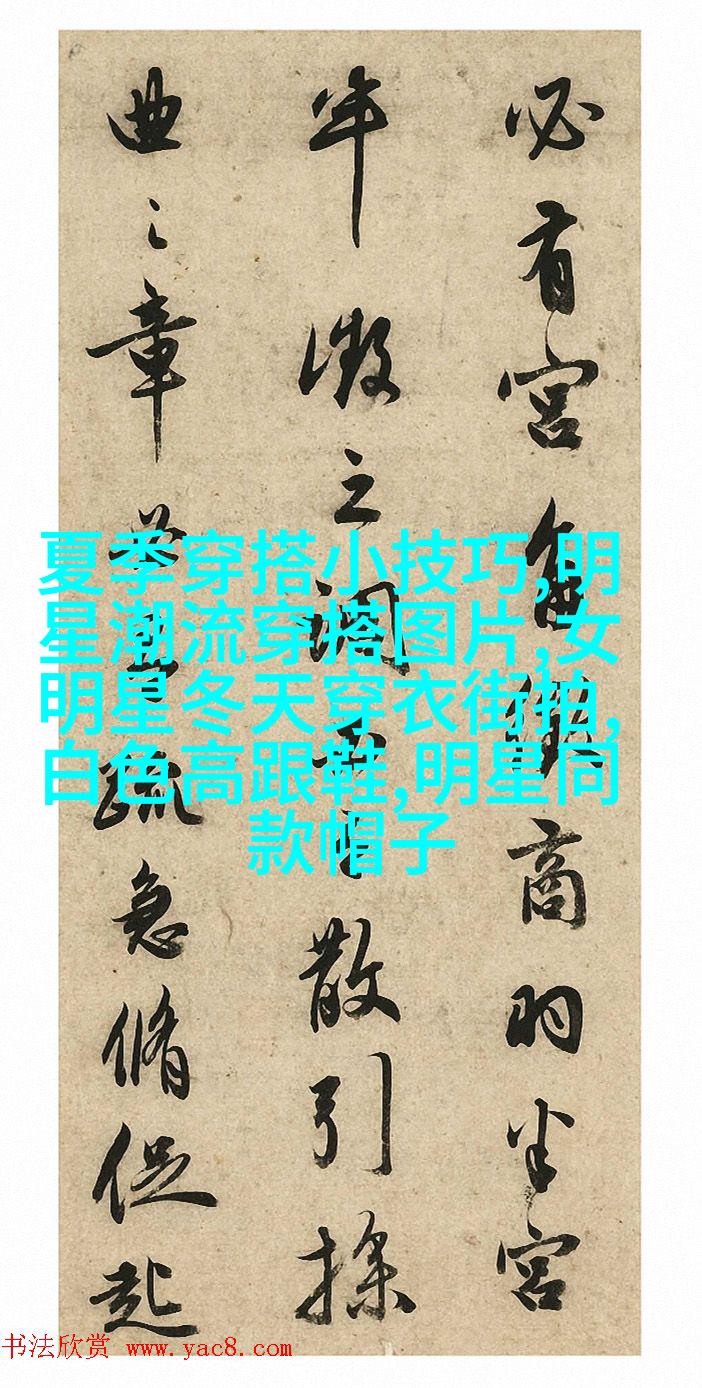 必有宮角徵商羽半宮
半徵之調散引操
曲之章疏急脩促起
夏季穿搭小技巧,明
星潮流穿搭图片,女
明星冬天穿衣街拍,
白色高跟鞋,明星同
款帽子
书法欣赏 www.yac8.com